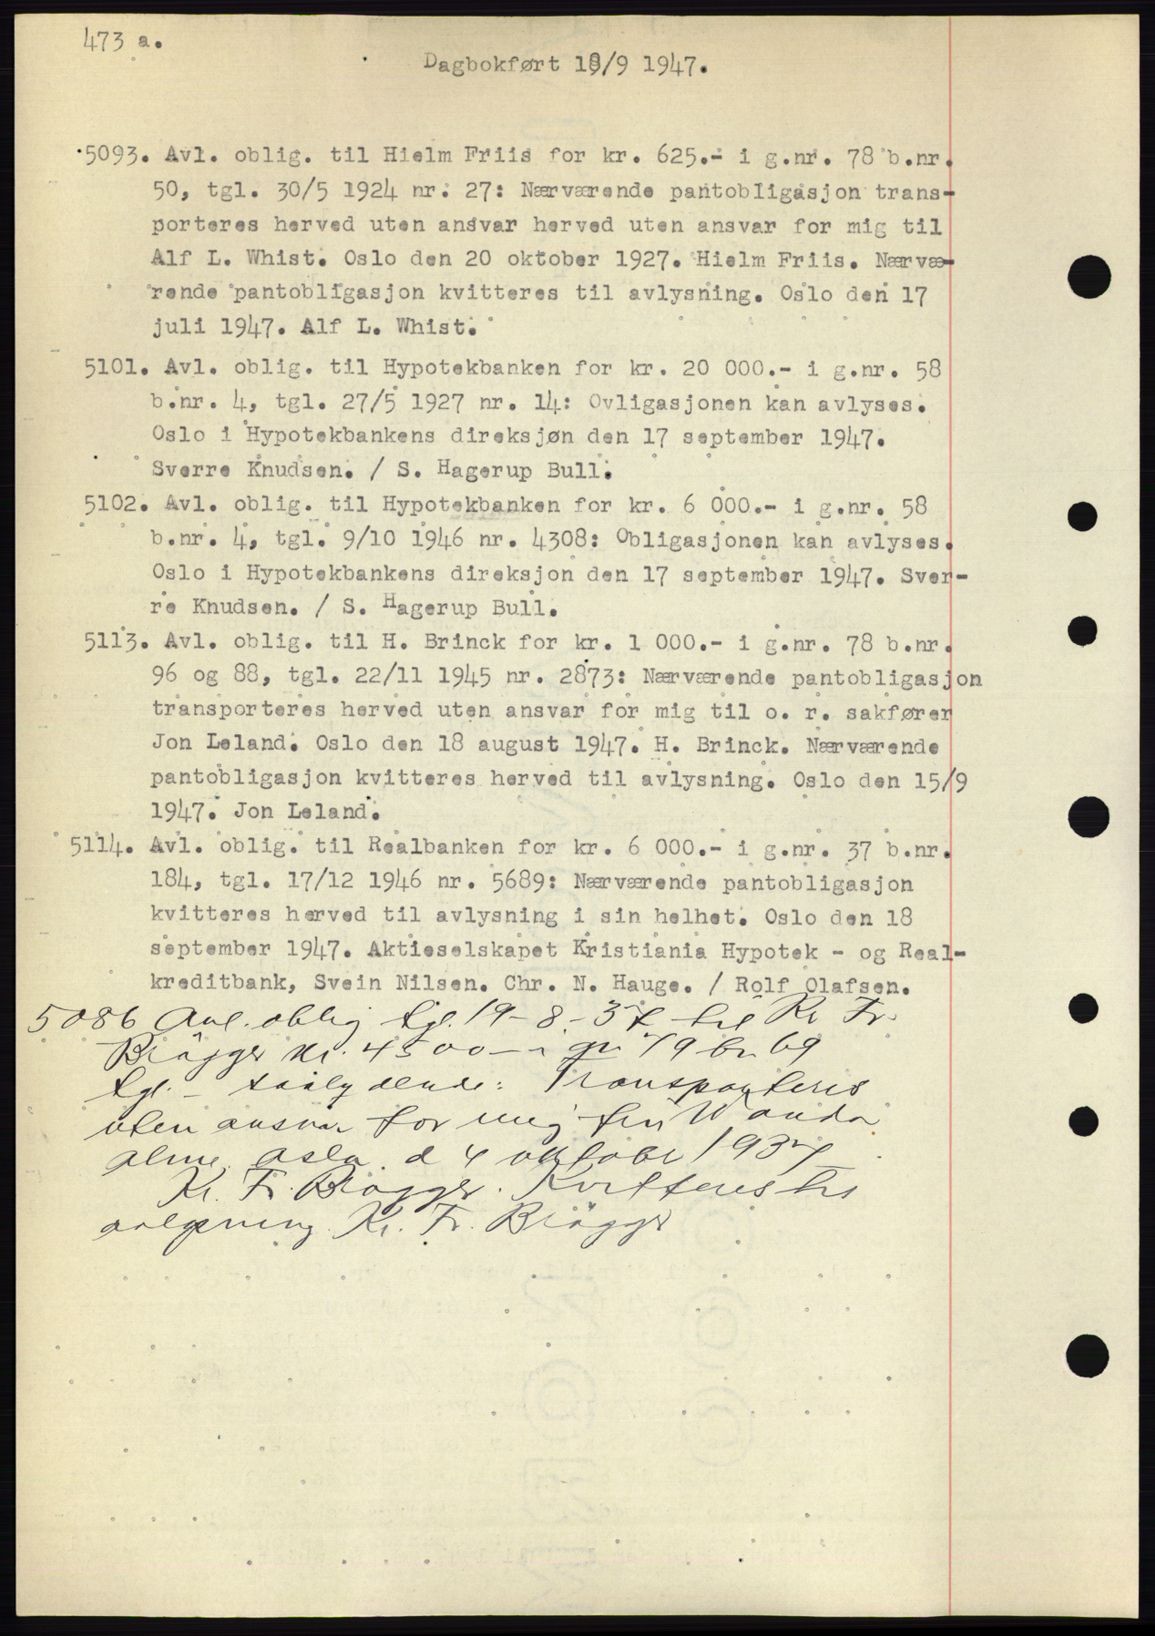 473 a.
Dagbokført 19/9 1947.
5093. Avl. oblig. til Hielm Friis for kr. 625.- i g.nr. 78 b.nr.
50, tgl. 30/5 1924 nr. 27: Nærværende pantobligasjon trans-
porteres herved uten ansvar herved uten ansvar for mig til
Alf L. Whist. Oslo den 20 oktober 1927. Hielm Friis. Nærvæ-
rende pantobligasjon kvitteres til avlysning. Oslo den 17
juli 1947. Alf L. Whist.
5101. Avl. oblig. til Hypotekbanken for kr. 20 000.- i g.nr. 58
b.nr. 4, tgl. 27/5 1927 nr. 14: Ovligasjonen kan avlyses.
Oslo i Hypotekbankens direksjøn den 17 september 1947.
Sverre Knudsen. / S. Hagerup Bull.
5102. Avl. oblig. til Hypotekbanken for kr. 6 000.- i g.nr. 58
b.nr. 4, tgl. 9/10 1946 nr. 4308: Obligasjonen kan avlyses.
Oslo i Hypotekbankens direksjon den 17 september 1947. Sver-
re Knudsen. / S. Hagerup Bull.
5113. Avl. oblig. til H. Brinck for kr. 1 000.- i g.nr. 78 b.nr.
96 og 88, tgl. 22/11 1945 nr. 2873: Nærværende pantobligasjon
transporteres herved uten ansvar for mig til o. r. sakfører
Jon Leland. Oslo den 18 august 1947. H. Brinck. Nærværende
pantobligasjon kvitteres herved til avlysning. Oslo den 15/9
1947. Jon Leland.
5114. Avl. oblig. til Realbanken for kr. 6 000.- i g.nr. 37 b.nr.
184, tgl. 17/12 1946 nr. 5689: Nærværende pantobligasjon
kvitteres herved til avlysning i sin helhet. Oslo den 18
september 1947. Aktieselskapet Kristiania Hypotek - og Real-
kreditbank, Svein Nilsen. Chr. N. Hauge. / Rolf Olafsen.
5086 Avl. oblig tgl. 19-8-37 til Kr Fr.
Brøgger kr. 4500 - i gn 79 bn 69
tgl. - saalydende: Transporteres
uten ansvar for mig til Wanda
Oslo d 4 oktober 1937
Kr. Fr. Brøgger. Kvitteres til
avlysning. Kr. Fr. Brøgger